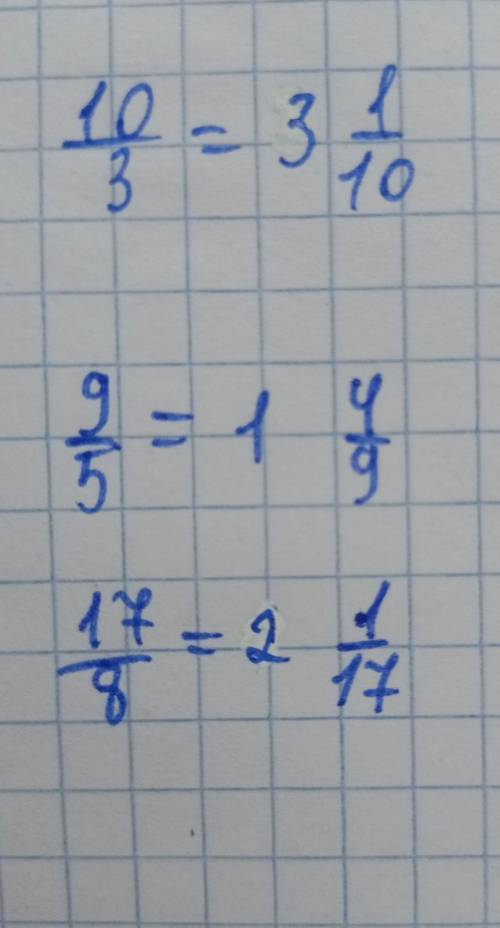 10/3 = 3 1/10
9/5 = 1 4/9
17/8 = 2 1/17